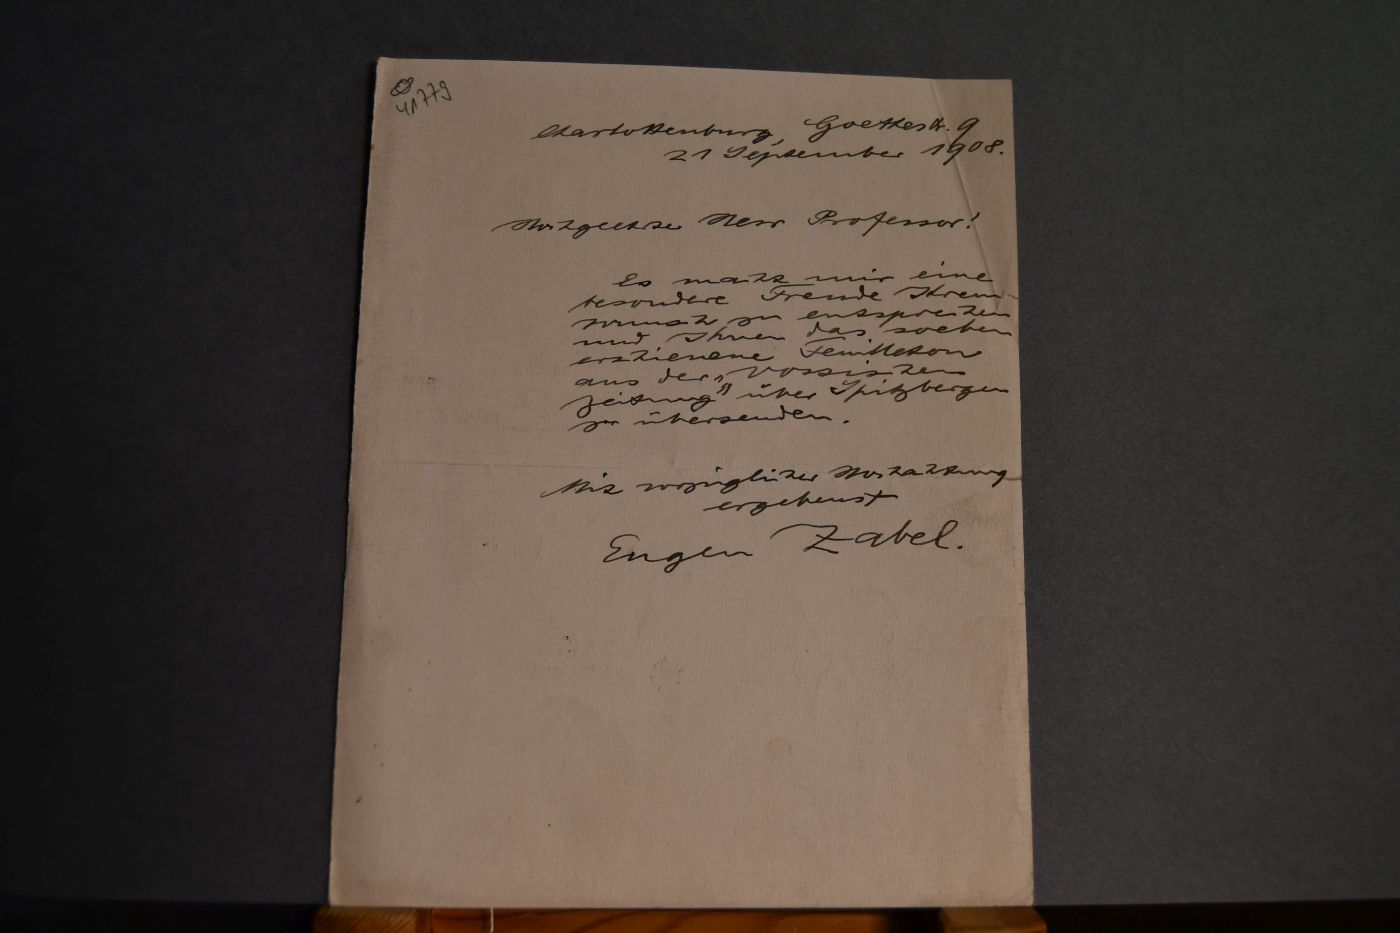 41779
Charlottenburg, Goethestr. 9
21 September 1908.
Hochgeehrter Herr Professor!
Es macht mir eine
besondere Freude Ihrem
Wunsch zu entsprechen
und Ihnen das soeben
erschienene Feuilleton
aus der „Vossischen
Zeitung" über Spitzbergen
zu übersenden.
Mit vorzüglicher Hochachtung
ergebenst
Eugen Zabel.